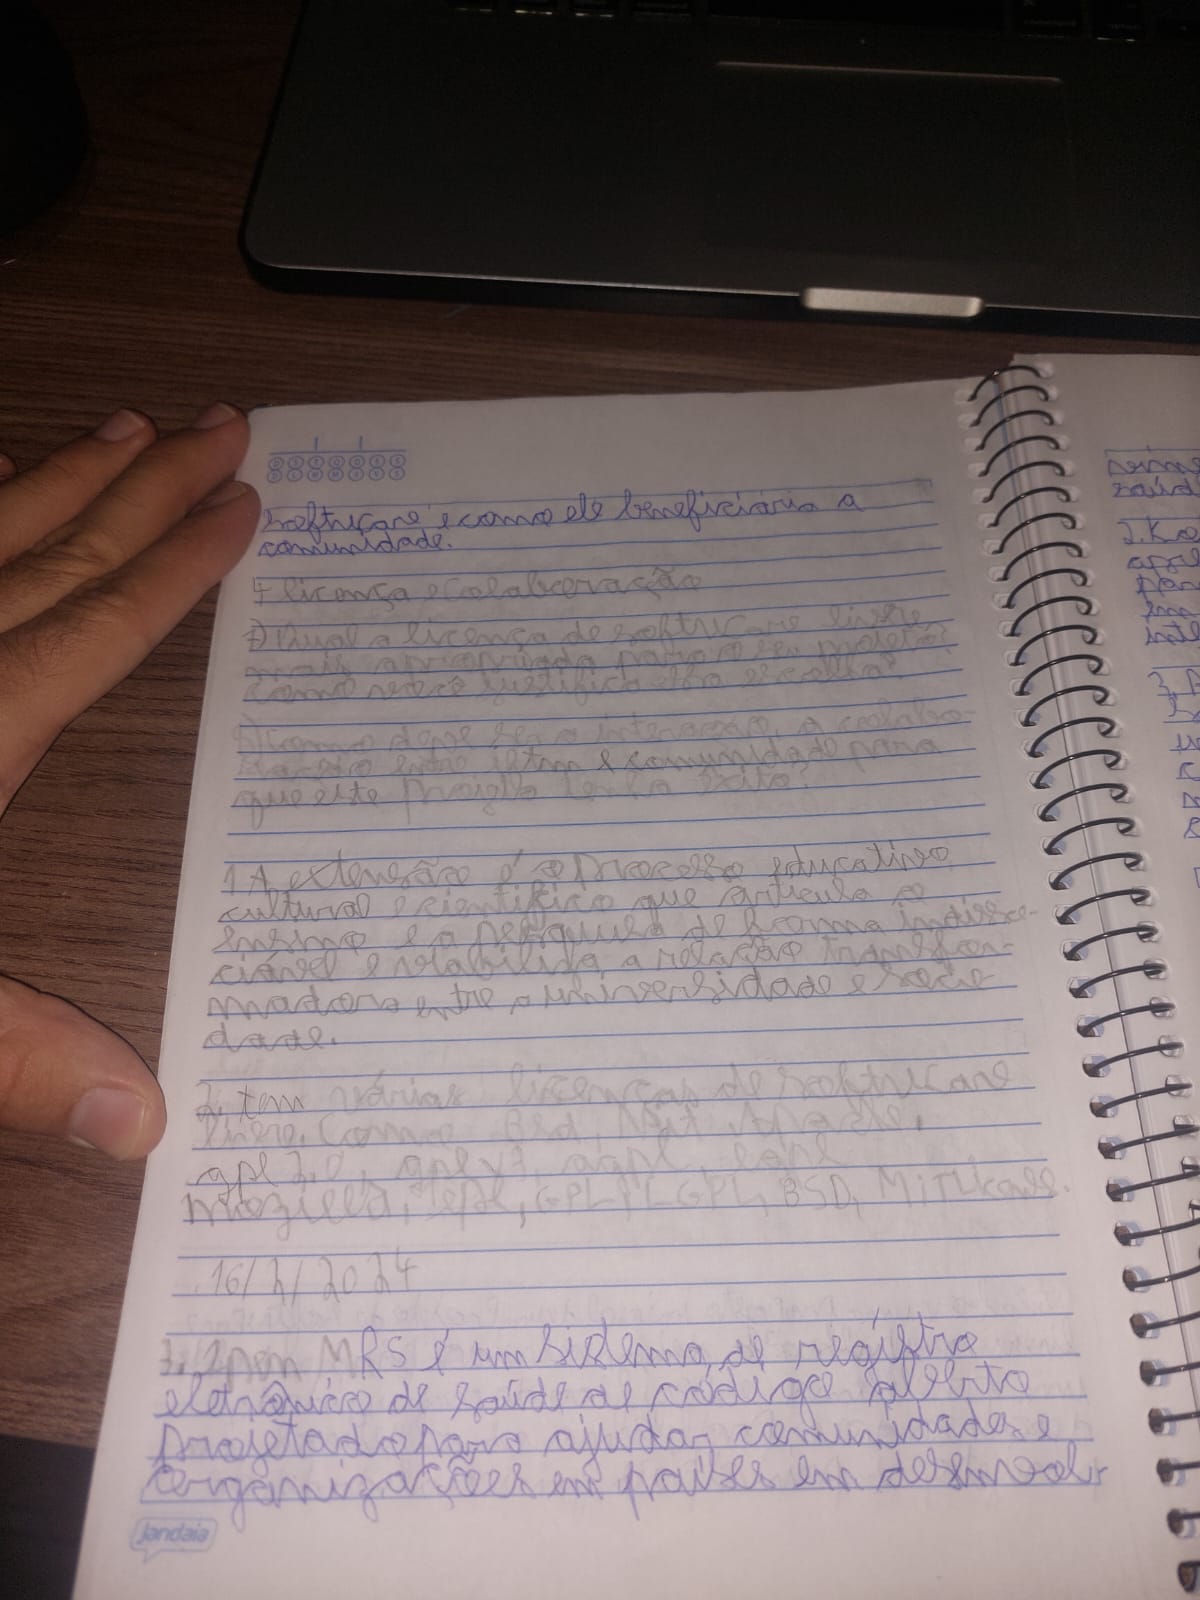 software e como ele beneficiária a
comunidade.
4 licença e colaboração
7) Qual a licença de software livre
mais apropriada para o seu projeto?
como você justifica essa escolha?
como deve ser a interação, a colabo-
ração entre e comunidade para
que este tenha êxito?
1. A extensão é o processo educativo
cultural e científico que articula o
ensino e a pesquisa de forma indisso-
ciável e viabiliza a relação transfor-
madora entre a universidade e socie
dade.
2. tem várias licenças de software
livre. Como Bsd, Apache,
gpl 2.0, gplv3, agpl,
GPL, LGPL, BSD,
16/2/2024
3. MRS é um sistema de registro
eletrônico de saúde de código aberto
projetado para ajudar comunidades e
organizações em países em desenvol-
jandaia
2.
3.